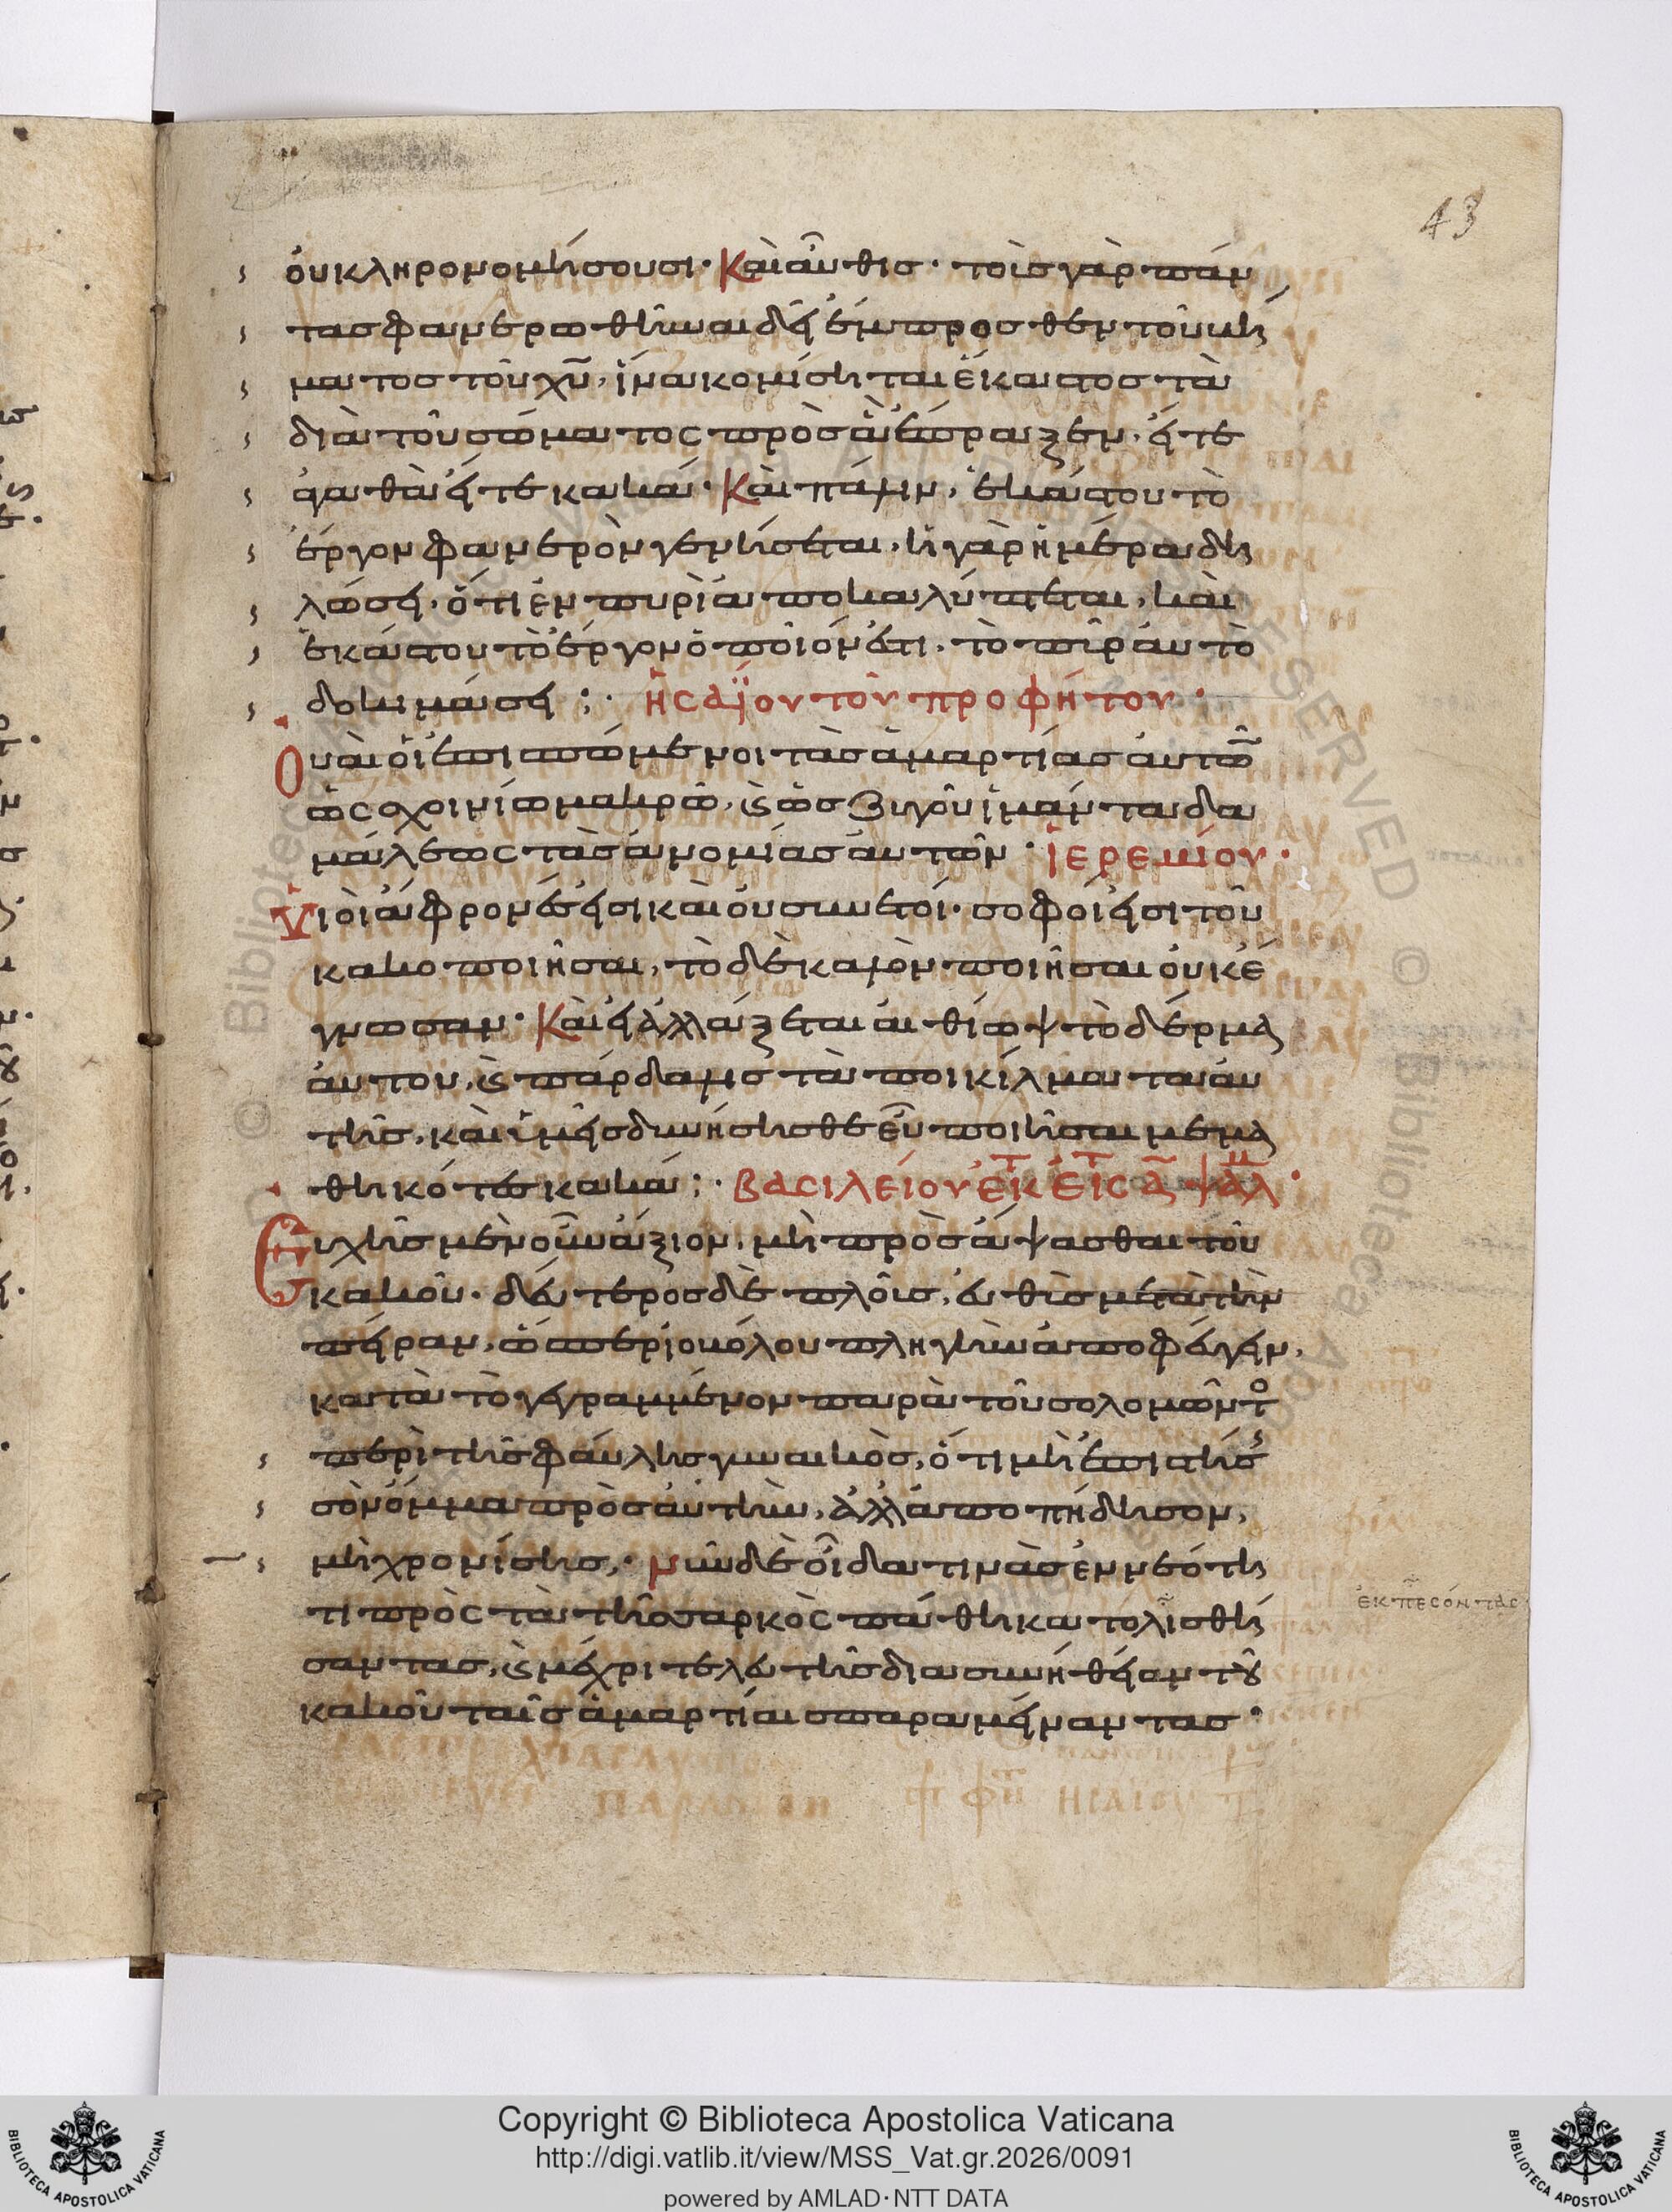 43
οὐ κληρονομήσουσι· Καὶ αὖθις· τοὺς γὰρ πάν
τας φανερωθῆναι δεῖ ἔμπροσθεν τοῦ βή
ματος τοῦ χυ̅, ἵνα κομίσηται ἕκαστος τὰ
διὰ τοῦ σώματος πρὸς ἃ ἔπραξεν, εἴτε
ἀγαθὰ εἴτε κακά· Καὶ πάλιν, ἑκάστου τὸ
ἔργον φανερὸν γενήσεται, ἡ γὰρ ἡμέρα δη
λώσει, ὅτι ἐν πυρὶ ἀποκαλύπτεται, καὶ
ἑκάστου τὸ ἔργον ὁποῖον ἐστι, τὸ πῦρ αὐτὸ
δοκιμάσει ;· ἡσαΐου τοῦ προφήτου·
Οὐαὶ οἱ ἐπισπώμενοι τὰς ἁμαρτίας αὐτῶ̅
ὡς σχοινίω μακρῶ, ϗ ὡς ζυγοῦ ἱμάντα δα
μάλεως τὰς ἀνομίας αὐτῶν· ἱερεμίου·
Υἱοὶ ἄφρονές εἰσι καὶ οὐ συνετοί· σοφοί εἰσι τοῦ
κακοποιῆσαι, τὸ δὲ καλὸν ποιῆσαι οὐκ ἐ
γνωσαν· Καὶ εἰ ἀλλάξεται αἰθίωψ τὸ δέρμα
αὐτου, ϗ πάρδαλις τὰ ποικίλματα αὐ
τῆς, καὶ ὑμεῖς δυνήσησθε εὖ ποιῆσαι μεμα
θηκότες κακά ;· βασιλείου ἐκ τ εἰς τ α̅ ψαλμ·
Εὐχῆς μὲν οὖν ἄξιον, μὴ προσάψασθαι τοῦ
κακοῦ· δεύτερος δὲ πλοῦς, εὐθὺς μετὰ τὴν
πεῖραν, ὥσπερ ἰοβόλου πληγὴν ἀποφεύγειν,
κατὰ τὸ γεγραμμένον παρὰ τοῦ σολομῶντο
περὶ τῆς φαύλης γυναικὸς, ὅτι μὴ ἐπιστήσῃς
σὸν ὄμμα πρὸς αὐτὴν, ἀλλὰ ἀποπήδησον,
μὴ χρονίσῃς,· νῦν δὲ οἶδα τινὰς ἐν νεότη
τι πρὸς τὰ τῆς σαρκὸς πάθη κατολισθή
σαντας, ϗ μέχρι τέλευ τῆς δια συνήθειαν τοῦ
ἐκπεσόντας
κακοῦ ταῖς ἁμαρτίαις παραμείναντας·
Copyright © Biblioteca Apostolica Vaticana
http://digi.vatlib.it/view/MSS_Vat.gr.2026/0091
powered by AMLAD·NTT DATA
BIBLIOTECA APOSTOLICA VATICANA
BIBLIOTECA APOSTOLICA VATICANA